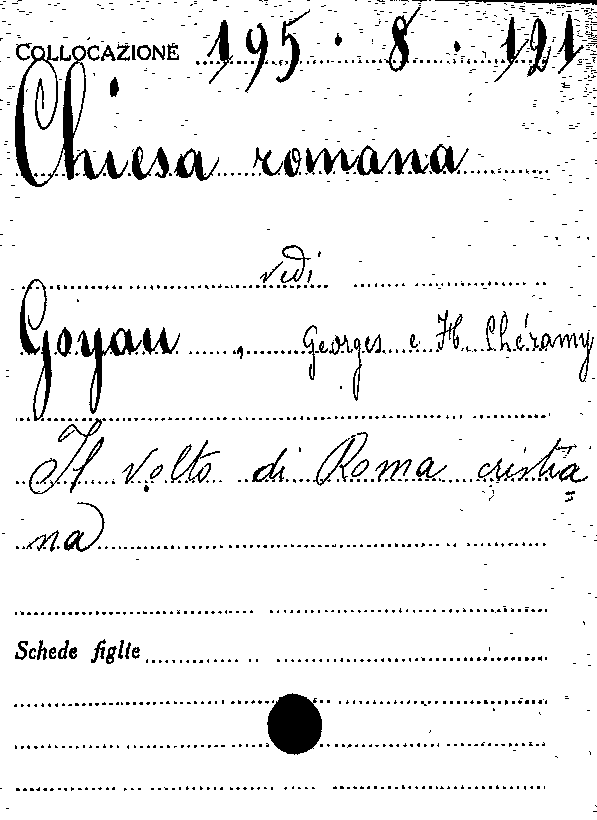 COLLOCAZIONE 195 · 8 · 121
Chiesa romana
vedi
Goyau, Georges e H. Chéramy
Il volto di Roma cristia=
na
Schede figlie